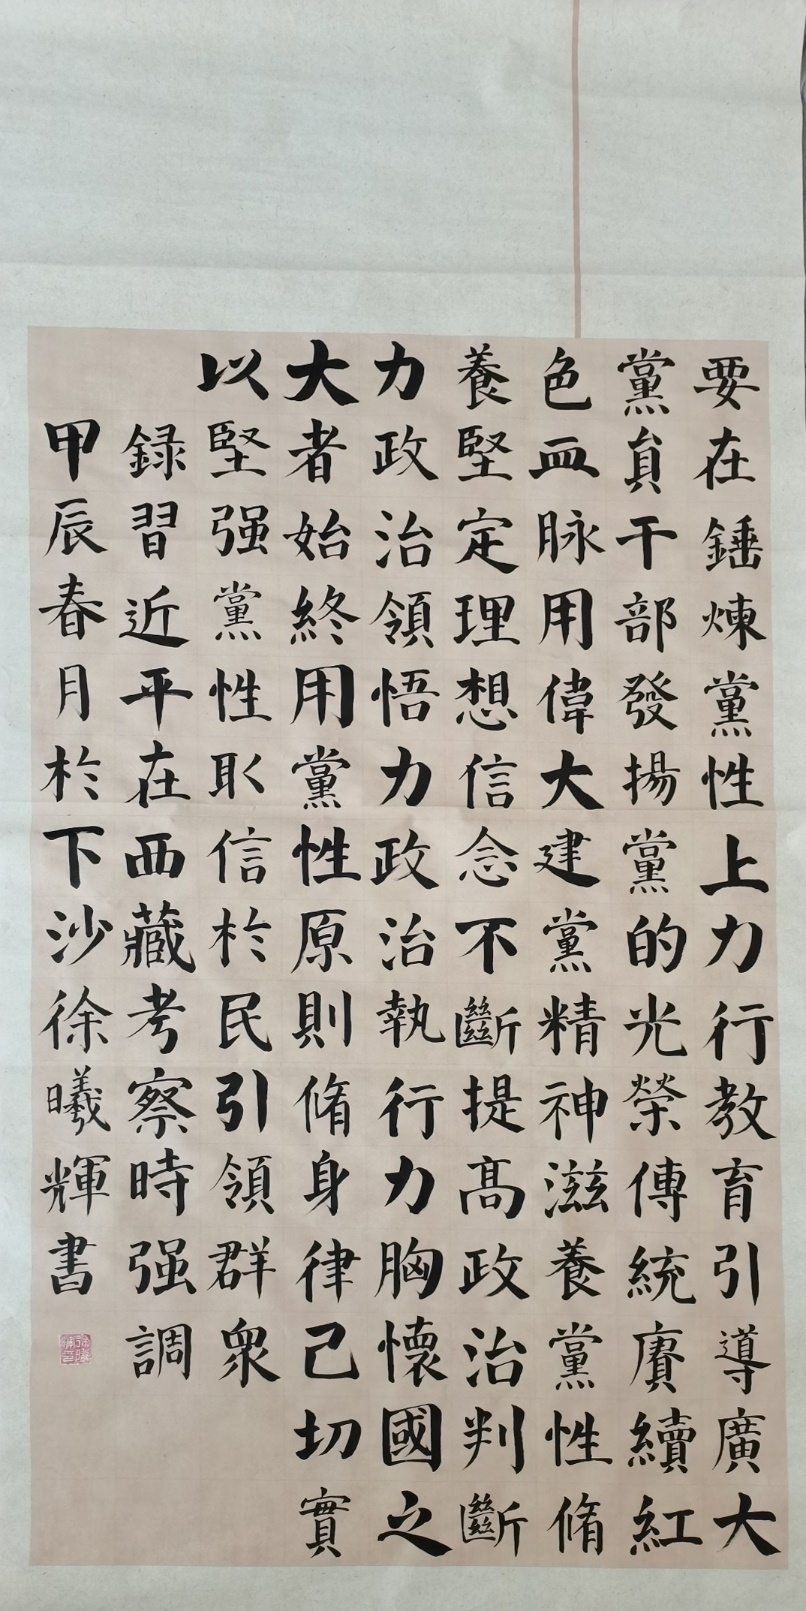 要在錘煉黨性上力行教育引導廣大
黨員干部發揚黨的光榮傳統賡續紅
色血脉用偉大建黨精神滋養黨性脩
養堅定理想信念不斷提高政治判斷
力政治領悟力政治執行力胸懷國之
大者始終用黨性原則脩身律己切實
以堅强黨性取信於民引領群衆
録習近平在西藏考察時强調
甲辰春月於下沙徐曦輝書